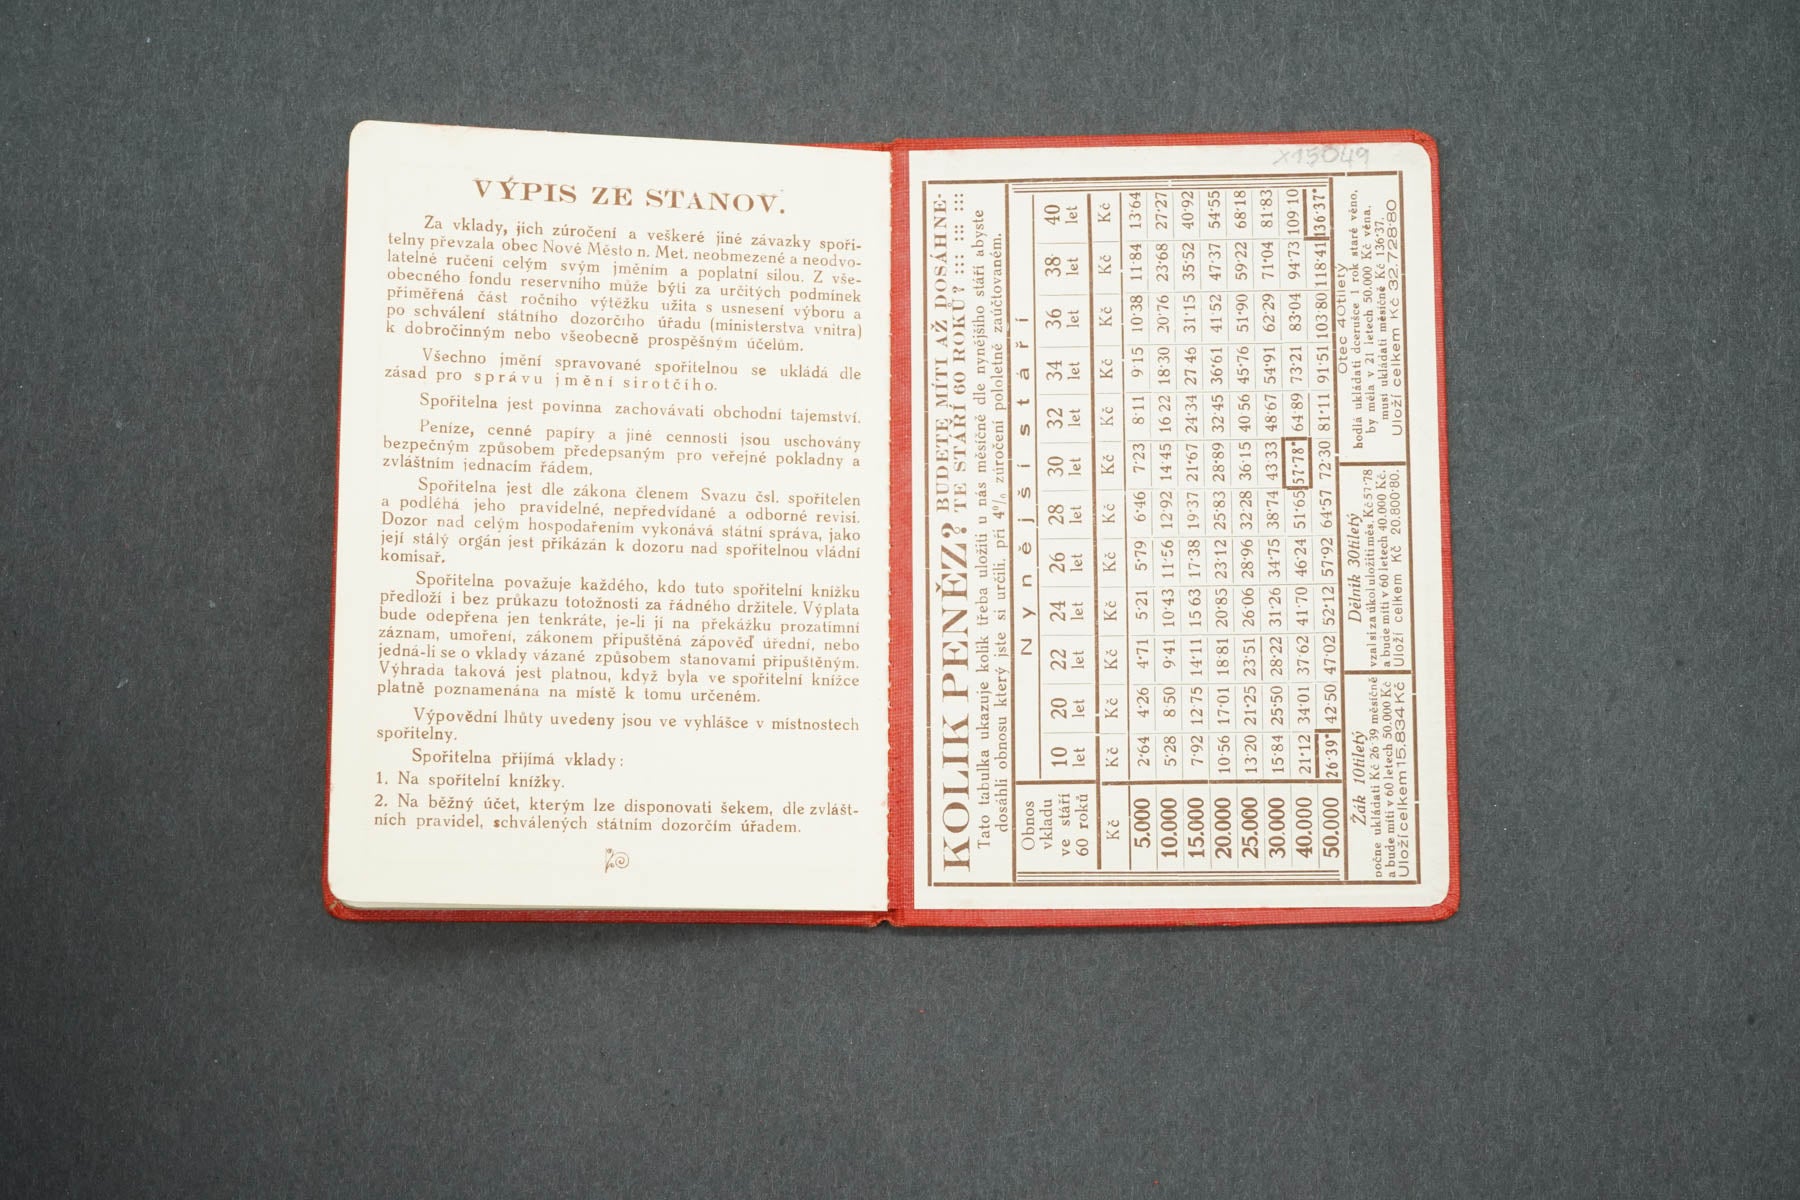 VÝPIS ZE STANOV.
Za vklady, jich zúročení a veškeré jiné závazky spoři-
telny převzala obec Nové Město n. Met. neobmezené a neodvo-
latelné ručení celým svým jměním a poplatní silou. Z vše-
obecného fondu reservního může býti za určitých podmínek
přiměřená část ročního výtěžku užita s usnesení výboru a
po schválení státního dozorčího úřadu (ministerstva vnitra)
k dobročinným nebo všeobecně prospěšným účelům.
Všechno jmění spravované spořitelnou se ukládá dle
zásad pro správu jmění sirotčího.
Spořitelna jest povinna zachovávati obchodní tajemství.
Peníze, cenné papíry a jiné cennosti jsou uschovány
bezpečným způsobem předepsaným pro veřejné pokladny a
zvláštním jednacím řádem.
Spořitelna jest dle zákona členem Svazu čsl. spořitelen
a podléhá jeho pravidelné, nepředvídané a odborné revisi.
Dozor nad celým hospodařením vykonává státní správa, jako
její stálý orgán jest přikázán k dozoru nad spořitelnou vládní
komisař.
Spořitelna považuje každého, kdo tuto spořitelní knížku
předloží i bez průkazu totožnosti za řádného držitele. Výplata
bude odepřena jen tenkráte, je-li jí na překážku prozatímní
záznam, umoření, zákonem připuštěná zápověď úřední, nebo
jedná-li se o vklady vázané způsobem stanovami připuštěným.
Výhrada taková jest platnou, když byla ve spořitelní knížce
platně poznamenána na místě k tomu určeném.
Výpovědní lhůty uvedeny jsou ve vyhlášce v místnostech
spořitelny.
Spořitelna přijímá vklady:
1. Na spořitelní knížky.
2. Na běžný účet, kterým lze disponovati šekem, dle zvlášt-
ních pravidel, schválených státním dozorčím úřadem.
x15049
KOLIK PENĚZ? BUDETE MÍTI AŽ DOSÁHNE-
TE STÁŘÍ 60 ROKŮ? ::: ::: ::: :::
Tato tabulka ukazuje kolik třeba uložiti u nás měsíčně dle nynějšího stáří abyste
dosáhli obnosu který jste si určili, při 4% zúročení pololetně zaúčtovaném.
Obnos vkladu ve stáří 60 roků
Nynější stáří
10 let 20 let 22 let 24 let 26 let 28 let 30 let 32 let 34 let 36 let 38 let 40 let
Kč Kč Kč Kč Kč Kč Kč Kč Kč Kč Kč Kč Kč
5.000 2·64 4·26 4·71 5·21 5·79 6·46 7·23 8·11 9·15 10·38 11·84 13·64
10.000 5·28 8·50 9·41 10·43 11·56 12·92 14·45 16 22 18·30 20·76 23·68 27·27
15.000 7·92 12·75 14·11 15 63 17·38 19·37 21·67 24·34 27 46 31·15 35·52 40·92
20.000 10·56 17·01 18·81 20·85 23·12 25·83 28·89 32·45 36·61 41·52 47·37 54·55
25.000 13·20 21·25 23·51 26·06 28·96 32·28 36·15 40 56 45·76 51·90 59·22 68·18
30.000 15·84 25·50 28·22 31·26 34·75 38·74 43·33 48·67 54·91 62·29 71·04 81·83
40.000 21·12 34·01 37·62 41·70 46·24 51·65 57·78* 64·89 73·21 83·04 94·73 109 10
50.000 26·39* 42·50 47·02 52·12 57·92 64·57 72·30 81·11 91·51 103·80 118·41 136·37*
Žák 10tiletý
počne ukládati Kč 26·39 měsíčně
a bude míti v 60 letech 50.000 Kč
Uloží celkem 15.834 Kč
Dělník 30tiletý
vzal si za úkol uložiti měs. Kč 57·78
a bude míti v 60 letech 40.000 Kč.
Uloží celkem Kč 20.800·80.
Otec 40tiletý
hodlá ukládati dcerušce 1 rok staré věno,
by měla v 21 letech 50.000 Kč věna,
musí ukládati měsíčně Kč 136·37.
Uloží celkem Kč 32.728·80